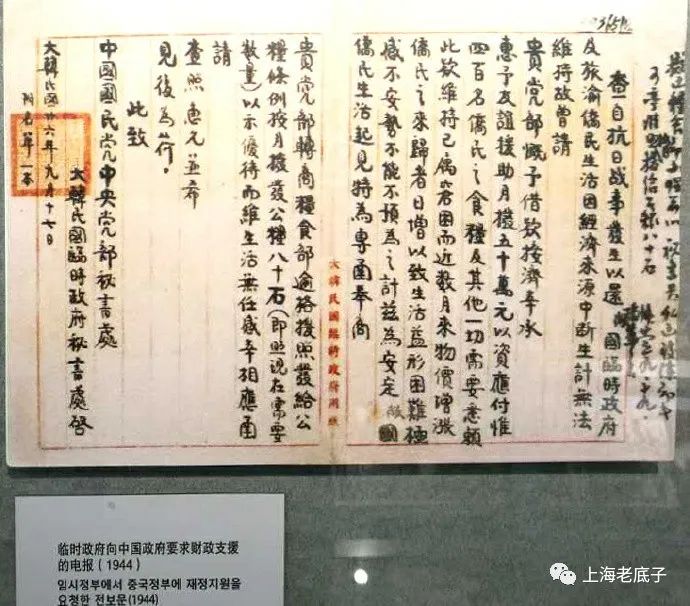 查自抗日战事發生以還 敝國臨時政府
及旅渝僑民生活因經濟來源中断生計無法
維持故曾請
貴党部慨予借款接濟奉承
惠予友誼援助月撥五十萬元以資應付惟
四百名僑民之食糧及其他一切需要意頗
此欲維持已属窘困而近数月來物價增漲
僑民之來歸者日增以致生活益形困難極
感不安勢不能不預為之計茲為安定 敝國
僑民生活起見特為專函奉商
大韓民國臨時政府用紙
貴党部轉商糧食部逾格援照發給公
糧條例按月撥發公糧八十石(即照現在需要
數量)以示優待而維生活無任感幸相應函
請
查照惠允並希
見復為荷。
此致
中國國民党中央党部祕書處
大韓民國臨時政府祕書處啓
大韓民國廿六年九月十七日
附名單一本
临时政府向中国政府要求财政支援
的电报（1944）
임시정부에서 중국정부에 재정지원을
요청한 전보문(1944)
上海老底子